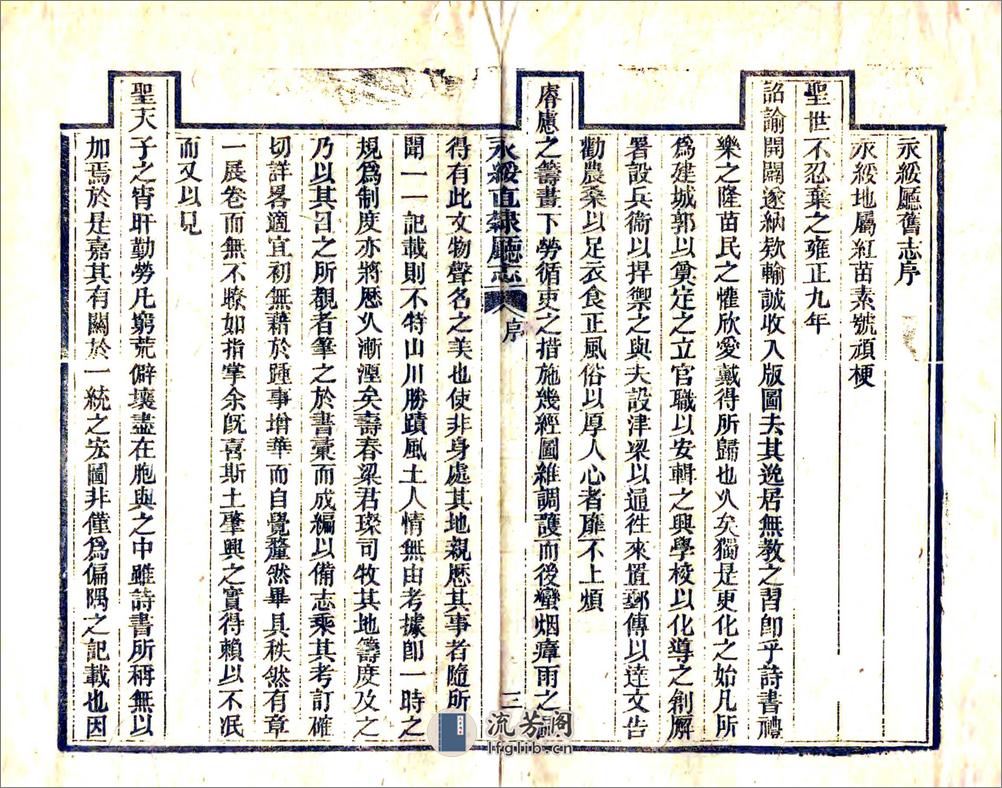 永綏廳舊志序
永綏地屬紅苗素號頑梗
聖世不忍棄之雍正九年
詔諭開闢遂納欵輸誠收入版圖去其逸居無教之習卽乎詩書禮
樂之隆苗民之懽欣愛戴得所歸也乆矣獨是更化之始凡所
爲建城郭以奠定之立官職以安輯之興學校以化導之創廨
署設兵衞以捍禦之與夫設津梁以通徃來置郵傳以達文告
勸農桑以足衣食正風俗以厚人心者靡不上煩
睿慮之籌畫下勞循吏之措施幾經圖維調護而後蠻烟瘴雨之
永綏直隸廳志 序 三
得有此文物聲名之美也使非身處其地親歷其事者隨所
聞一一記載則不特山川勝蹟風土人情無由考據卽一時之
規爲制度亦將歷乆漸湮矣壽春梁君瑔司牧其地籌度及之
乃以其日之所觀者筆之於書彚而成編以備志乘其考訂確
切詳畧適宜初無藉於踵事增華而自覺釐然畢具秩然有章
一展卷而無不瞭如指掌余旣喜斯土肇興之實得賴以不泯
而又以見
聖天子之宵旰勤勞凡窮荒僻壤盡在胞與之中雖詩書所稱無以
加焉於是嘉其有關於一統之宏圖非僅爲偏隅之記載也因
流芳阁
lfglib.cn